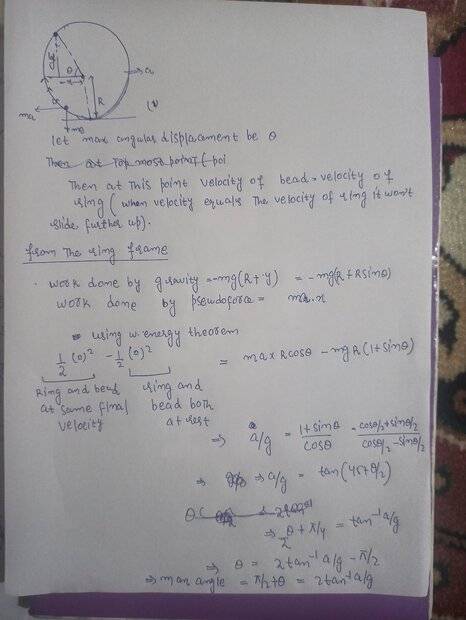 θ
x
a
R
ma
mg
(1)
let max angular displacement be θ
Then at top most point (poi
Then at this point velocity of bead = velocity of
ring (when velocity equals the velocity of ring it won't
slide further up).
from the ring frame
• work done by gravity = -mg(R+y) = -mg(R+Rsinθ)
work done by pseudoforce = ma.x
using w.energy theorem
1/2 (0)² - 1/2 (0)² = ma x Rcosθ - mgR(1+sinθ)
Ring and bead at same final velocity
ring and bead both at rest
⇒ a/g = (1+sinθ)/cosθ = (cosθ/2+sinθ/2)/(cosθ/2-sinθ/2)
⇒ ⇒ a/g = tan(45+θ/2)
⇒ θ/2 + π/4 = tan⁻¹ a/g
⇒ θ = 2tan⁻¹ a/g - π/2
⇒ max angle = π/2+θ = 2tan⁻¹ a/g